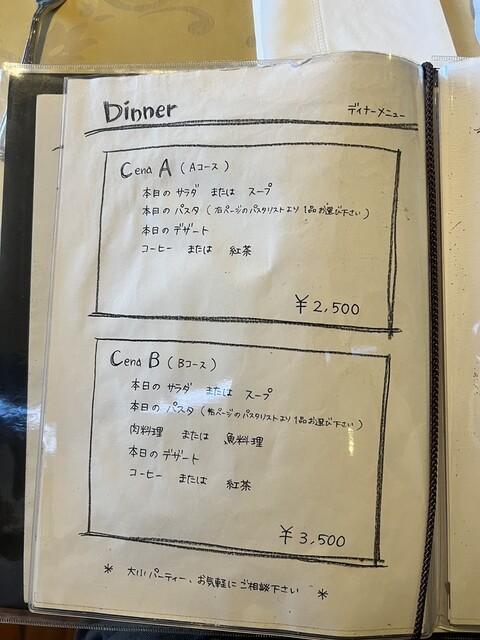 Dinner ディナーメニュー
Cena A (Aコース)
本日の サラダ または スープ
本日の パスタ (右ページのパスタリストより1品お選び下さい)
本日の デザート
コーヒー または 紅茶
¥2,500
Cena B (Bコース)
本日の サラダ または スープ
本日の パスタ (右ページのパスタリストより1品お選び下さい)
肉料理 または 魚料理
本日の デザート
コーヒー または 紅茶
¥3,500
* 大小パーティー、お気軽にご相談下さい *